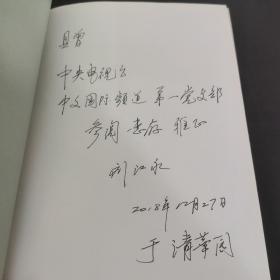 惠曾
中央电视台
中文国际频道第一党支部
参阅 惠存 雅正
刘江永
2018年12月27日
于清华园